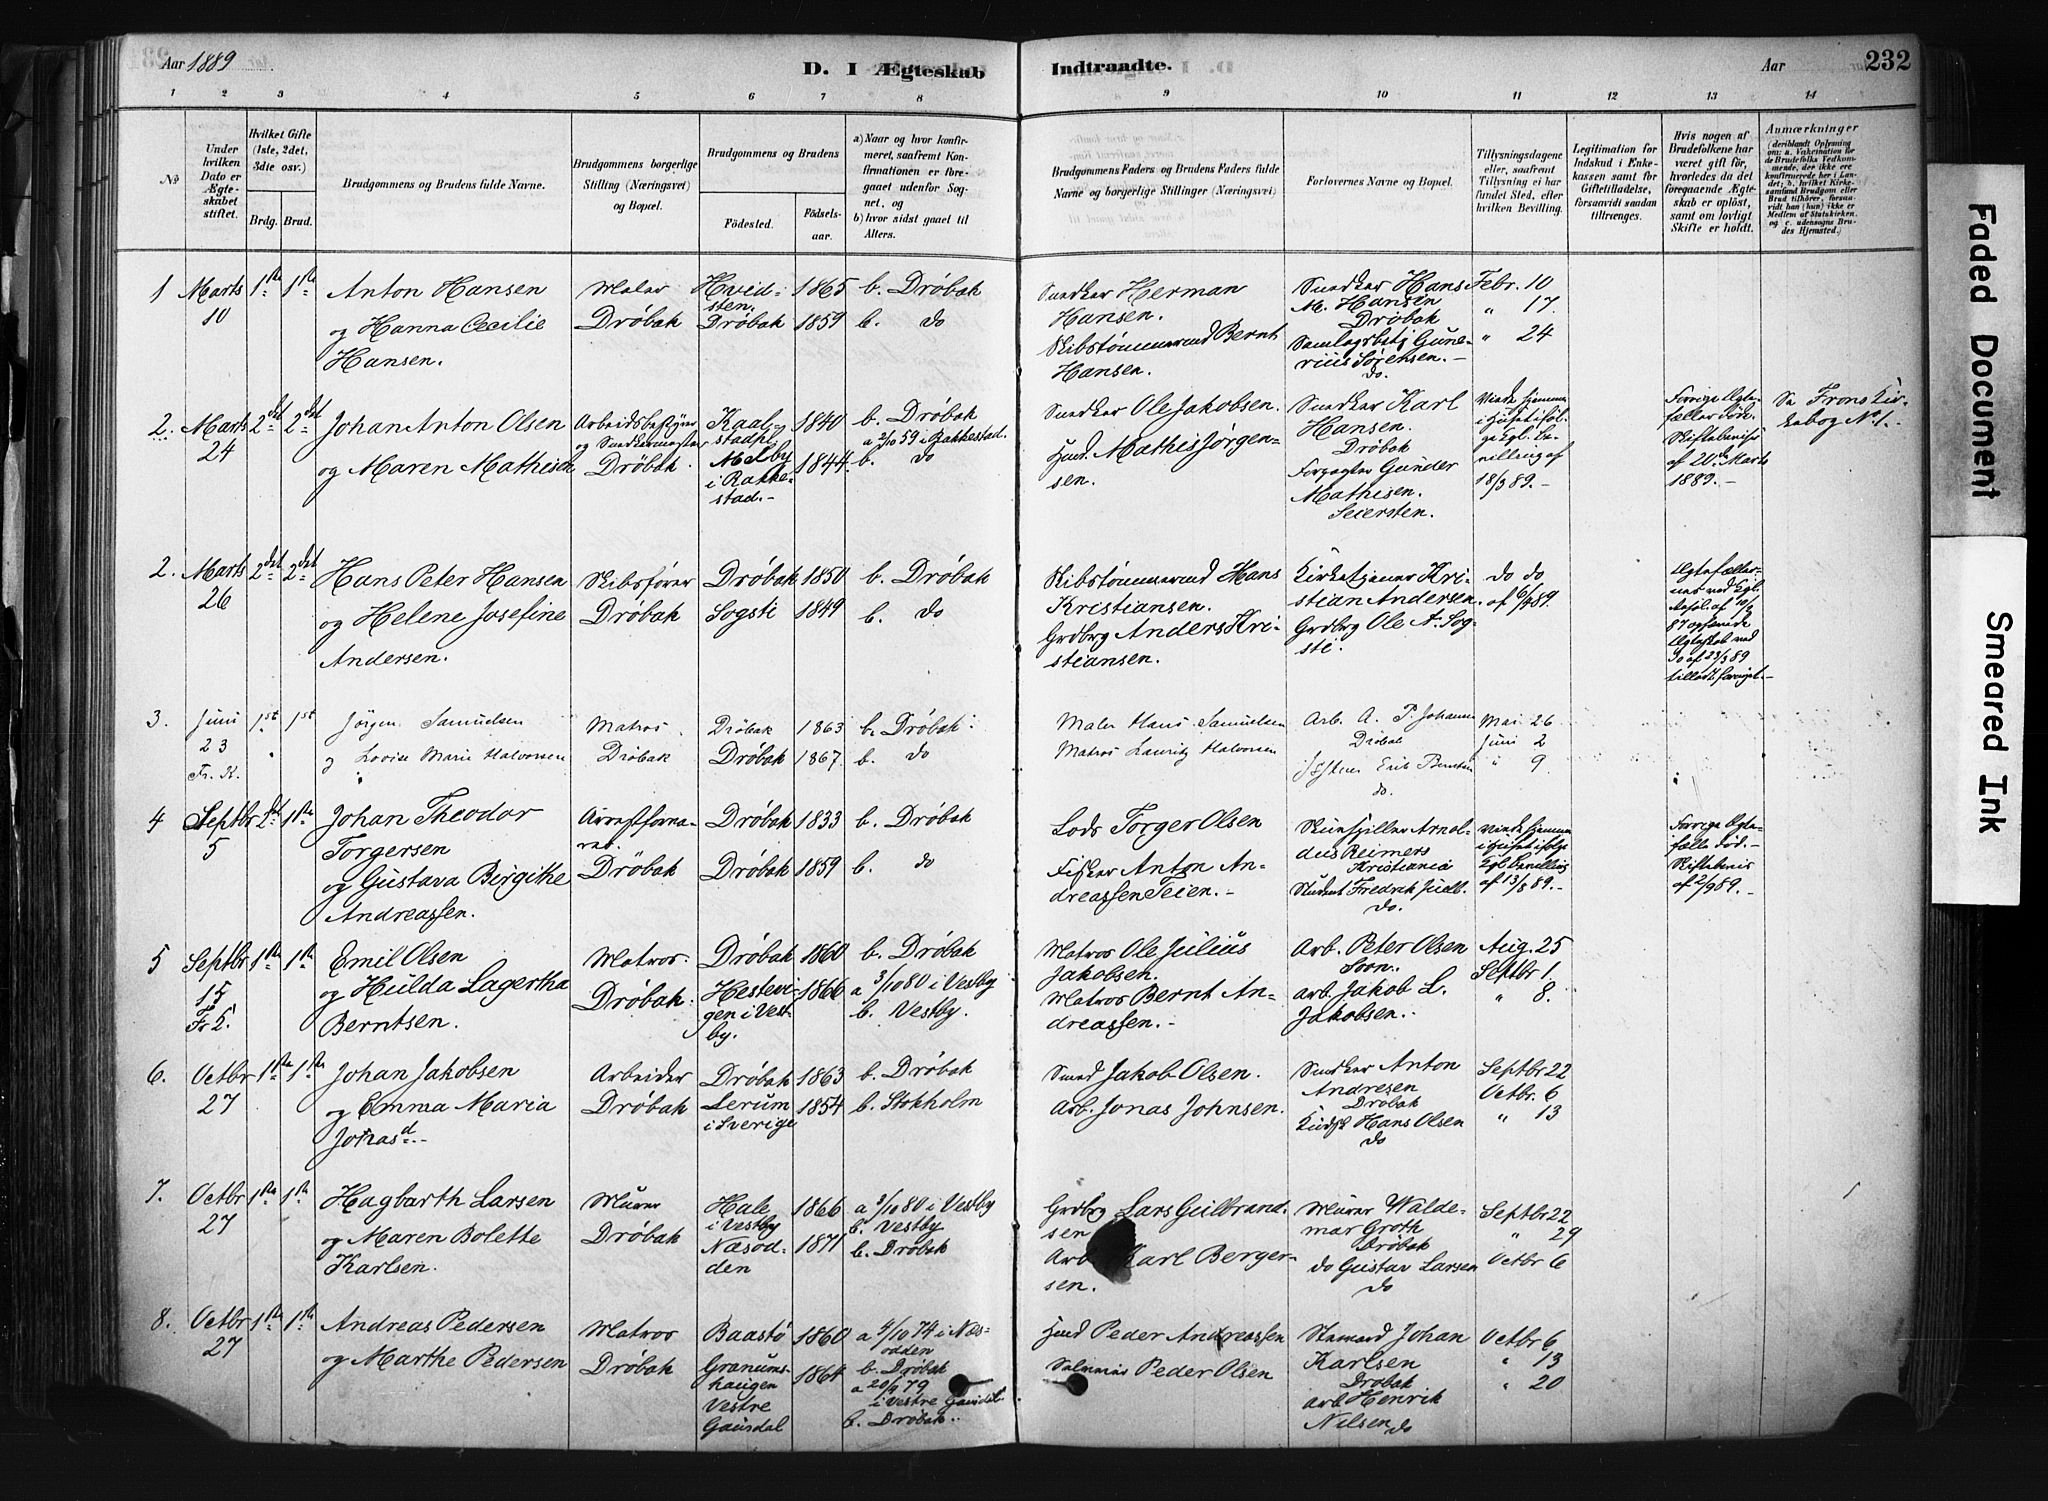 Aar 1889
D. I Ægteskab
Indtraadte.
Aar
232
1 2 3 4 5 6 7 8 9 10 11 12 13 14
No
Under hvilken Dato er Ægteskabet stiftet.
Hvilket Gifte (1ste, 2det, 3die osv.)
Brdg. Brud.
Brudgommens og Brudens fulde Navne.
Brudgommens borgerlige Stilling (Næringsvei) og Bopæl.
Brudgommens og Brudens
Fødested.
Fødselsaar.
a) Naar og hvor konfirmeret, saafremt Konfirmationen er foregaaet udenfor Sognet, og
b) hvor sidst gaaet til Alters.
Brudgommens Faders og Brudens Faders fulde Navne og borgerlige Stillinger (Næringsvei)
Forlovernes Navne og Bopæl.
Tillysningsdagene eller, saafremt Tillysning ei har fundet Sted, efter hvilken Bevilling.
Legitimation for Indskud i Enkekassen samt for Giftetilladelse, forsaavidt saadan tiltrænges.
Hvis nogen af Brudefolkene har været gift før, hvorledes da det foregaaende Ægteskab er opløst, samt om lovligt Skifte er holdt.
Anmærkninger
1 Marts 10 1ste 1ste
Anton Hansen
og Hanna Cecilie
Hansen.
Maler
Drøbak
Hvidsten.
Drøbak
1865
1859
b. Drøbak
b. do
Snedker Herman
Hansen.
Skibstømmermd Bernt
Hansen.
Snedker Hans
M. Hansen
Drøbak
Samlagsbstj Gunerius Sørensen.
do.
Febr. 10
" 17.
" 24
2. Marts 24 2det 2det
Johan Anton Olsen
og Maren Mathisen
Drøbak.
Melby
i Rakkestad.
1840
1844.
b. Drøbak
a 2/10 59 i Rakkestad.
b. do
Snedker Ole Jakobsen.
Hmd. Mathis Jørgensen.
Snedker Karl
Hansen.
Drøbak
Forpagter Gunder
Mathisen.
Seiersten.
18/3 89.
af 20de Marts
1889.
Se Frons Kirkebog No 1.
2. Marts 26 2det 2det
Hans Peter Hansen
og Helene Josefine
Andersen.
Skibsfører
Drøbak
Drøbak
Sogsti
1850
1849
b. Drøbak
b. do
Skibstømmermd Hans
Kristiansen.
Grdbrg Anders Kristiansen.
Kirketjener Kristian Andersen.
Grdbrg Ole A. Sogsti.
do do
3. Juni 23 Fr. K. 1st 1st
Jørgen Samuelsen
og Lovise Marie Halvorsen
Matros
Drøbak
Drøbak
Drøbak
1863
1867.
b. Drøbak
b. do
Maler Hans Samuelsen
Matros Lauritz Halvorsen
Arb. A. P. Johansen
Drøbak
do.
Mai 26
Juni 2
" 9
4 Septbr 5 2det 1ste
Johan Theodor
Torgersen
og Gustava Birgithe
Andreassen.
Drøbak
Drøbak
Drøbak
1833
1859
b. Drøbak
b. do
Lods Torger Olsen
Fisker Anton Andreassen Teien.
Skuespiller Arnoldus Reimers
Kristiania
Student Fredrik Juell
do.
af 13/8 89.
Forrige Ægtefælle død.
Skiftebevis
af 2/9 89.
5 Septbr 15 1ste 1ste
Emil Olsen
og Hulda Lagertha
Berntsen.
Matros.
Drøbak.
Drøbak
Hestevigen i Vestby.
1860
1866
b. Drøbak
a 3/10 80 i Vestby
b. Vestby.
Matros Ole Julius
Jakobsen.
Matros Bernt Andreassen.
Arb. Peter Olsen
Soon.
Arb. Jakob L.
Jakobsen.
Aug. 25
Septbr 1.
" 8.
6. Octbr 27 1ste 1ste
Johan Jakobsen
og Emma Maria
Jonasd.
Arbeider
Drøbak
Drøbak
Lerum
i Sverige
1863
1854
b. Drøbak
b. Stokholm
Smed Jakob Olsen.
Arb. Jonas Johnsen.
Snedker Anton
Andresen
Drøbak
Kudsk Hans Olsen
do
Septbr 22
Octbr. 6
" 13
7. Octbr 27 1ste 1ste
Hagbarth Larsen
og Maren Bolette
Karlsen.
Murer
Drøbak
Hale
i Vestby
Næsodden
1866
1871
a 3/10 80 i Vestby
b. Vestby
b. Drøbak
Grdbrg Lars Gulbrandsen
Arb. Karl Bergersen.
Murer Waldemar Groth
Drøbak
do Gustav Larsen
do
Septbr 22
" 29
Octbr 6
8. Octbr 27 1ste 1ste
Andreas Pedersen
og Marthe Pedersen
Matros
Drøbak
Baastø
Granumshaugen
Vestre
Gausdal
1860
1864
a 4/10 74 i Næsodden
b. Drøbak
a 20/4 79
i Vestre Gausdal
b. Drøbak.
Hmd Peder Andreassen
Peder Olsen
Johan
Karlsen
Drøbak
Arb Henrik
Nilsen do
Octbr 6
" 13
" 20
Faded Document
Smeared Ink